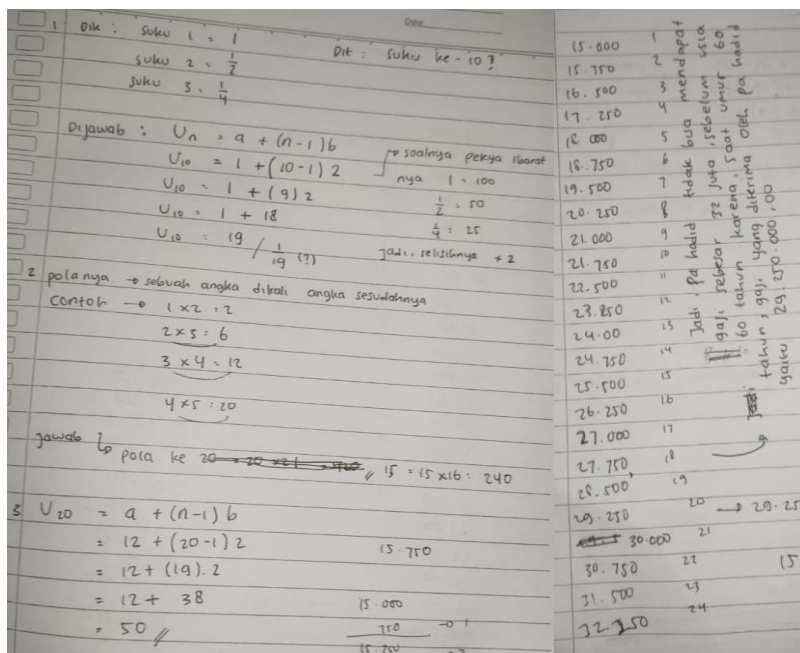 Date
1 Dik : Suku 1 = 1
Dit : Suku ke - 10?
Suku 2 = 1/2
Suku 3 = 1/4
Dijawab : Un = a + (n-1) b
U10 = 1 + (10-1) 2
U10 = 1 + (9) 2
U10 = 1 + 18
U10 = 19 / 1/19 (?)
→ soalnya ibarat
nya 1 = 100
1/2 = 50
1/4 = 25
Jadi, selisihnya × 2
2 polanya → sebuah angka dikali angka sesudahnya
Contoh → 1 x 2 = 2
2 x 3 = 6
3 x 4 = 12
4 x 5 = 20
Jawab
pola ke 20 = 20 x 21 = 420 // 15 = 15 x 16 = 240
3 U20 = a + (n-1) b
= 12 + (20-1) 2
= 12 + (19) . 2
= 12 + 38
= 50 //
15.750
15.000
750 → 1
15.750
15.000 1
15.750 2
16.500 3
17.250 4
18.000 5
18.750 6
19.500 7
20.250 8
21.000 9
21.750 10
22.500 11
23.250 12
24.00 13
24.750 14
25.500 15
26.250 16
27.000 17
27.750 18
28.500 19
29.250 20 → 29.25
30.000 21
30.750 22
15
31.500 23
32.250 24
Jadi, pa hadid tidak bisa mendapat
gaji sebesar 32 juta, sebelum usia
60 tahun karena, saat umur 60
tahun, gaji yang diterima oleh pa hadid
yaitu 29.250.000,00